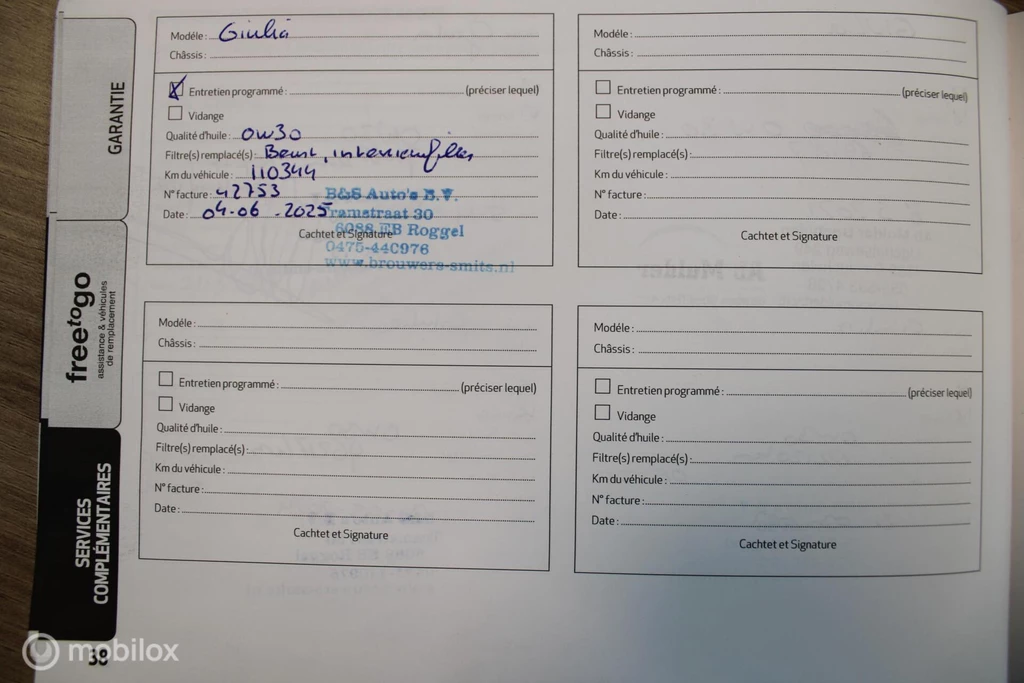 GARANTIE
freetogo
assistance & véhicules
de remplacement
SERVICES
COMPLÉMENTAIRES
38
mobilox
Modèle : Giulia
Châssis :
Entretien programmé : (préciser lequel)
Vidange
Qualité d'huile : 0W30
Filtre(s) remplacé(s) :
Km du véhicule : 110344
N° facture : 42753
Date : 04-06-2025
Cachtet et Signature
B&S Auto's B.V.
ramstraat 30
6088 EB Roggel
0475-440976
www.brouwers-smits.nl
Modèle :
Châssis :
Entretien programmé : (préciser lequel)
Vidange
Qualité d'huile :
Filtre(s) remplacé(s) :
Km du véhicule :
N° facture :
Date :
Cachtet et Signature
Modèle :
Châssis :
Entretien programmé : (préciser lequel)
Vidange
Qualité d'huile :
Filtre(s) remplacé(s) :
Km du véhicule :
N° facture :
Date :
Cachtet et Signature
Modèle :
Châssis :
Entretien programmé : (préciser lequel)
Vidange
Qualité d'huile :
Filtre(s) remplacé(s) :
Km du véhicule :
N° facture :
Date :
Cachtet et Signature